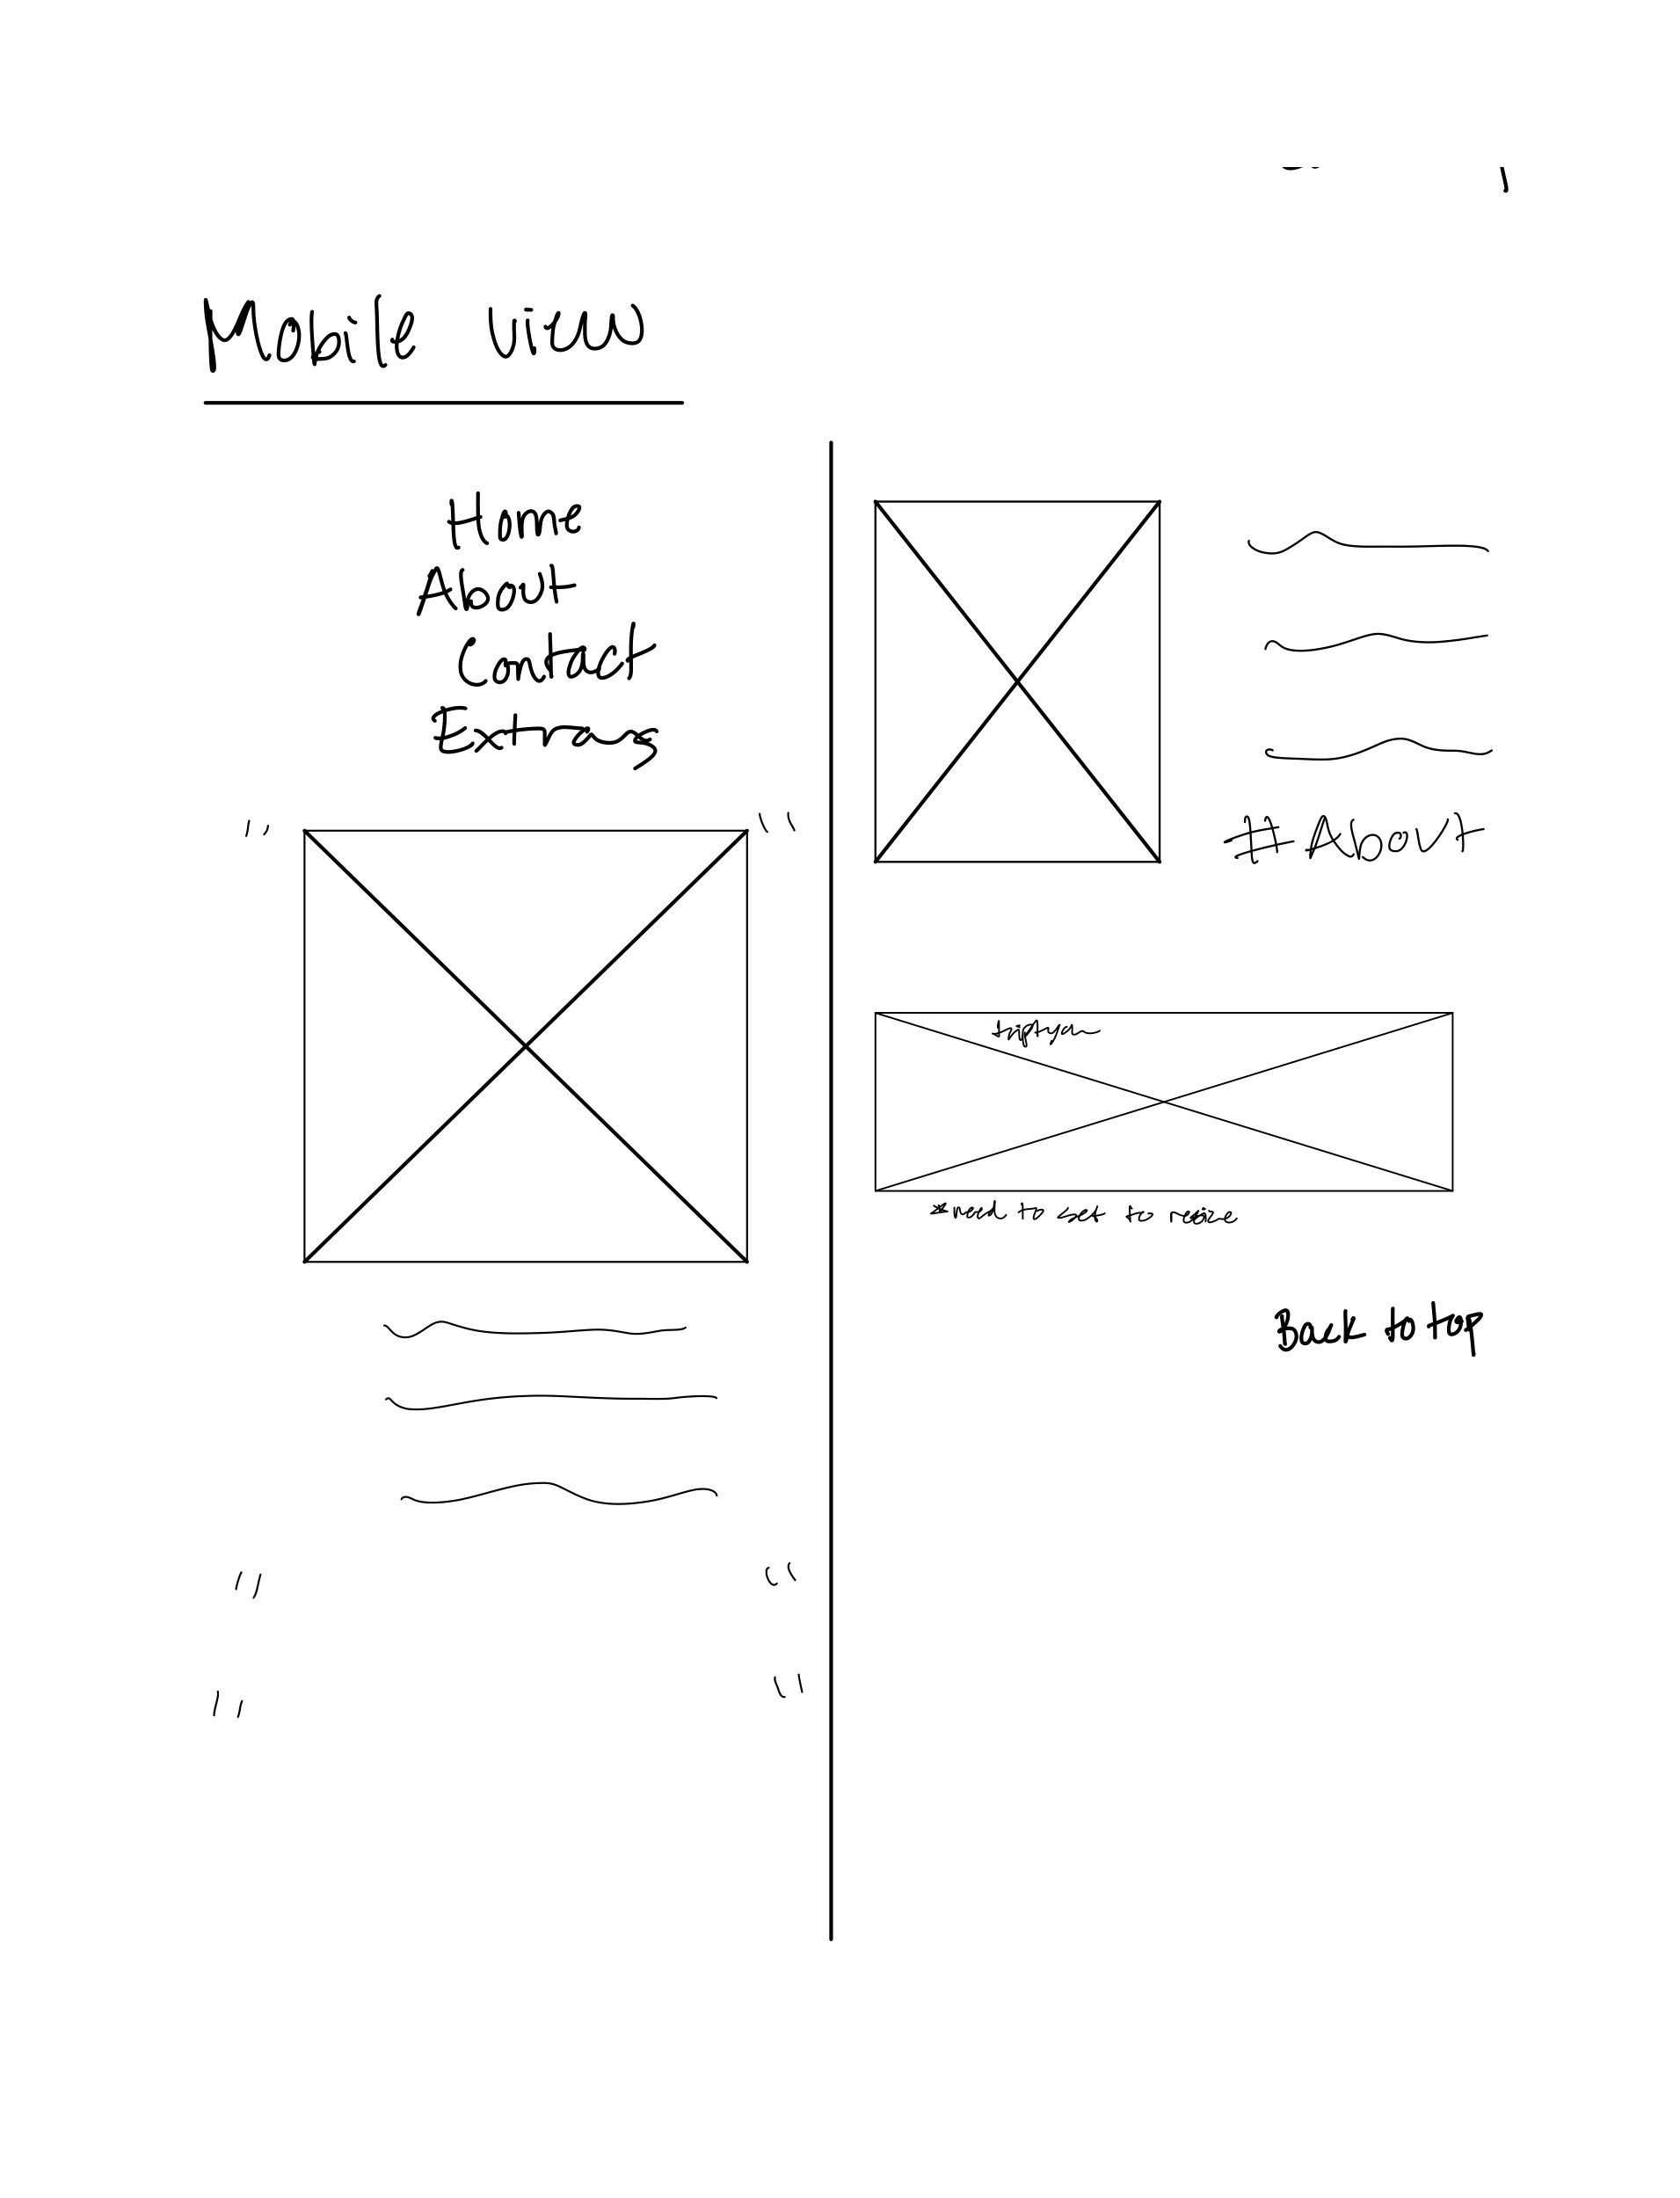 Mobile view
Home
About
Contact
Extras
#About
*need to set to resize
Back to top